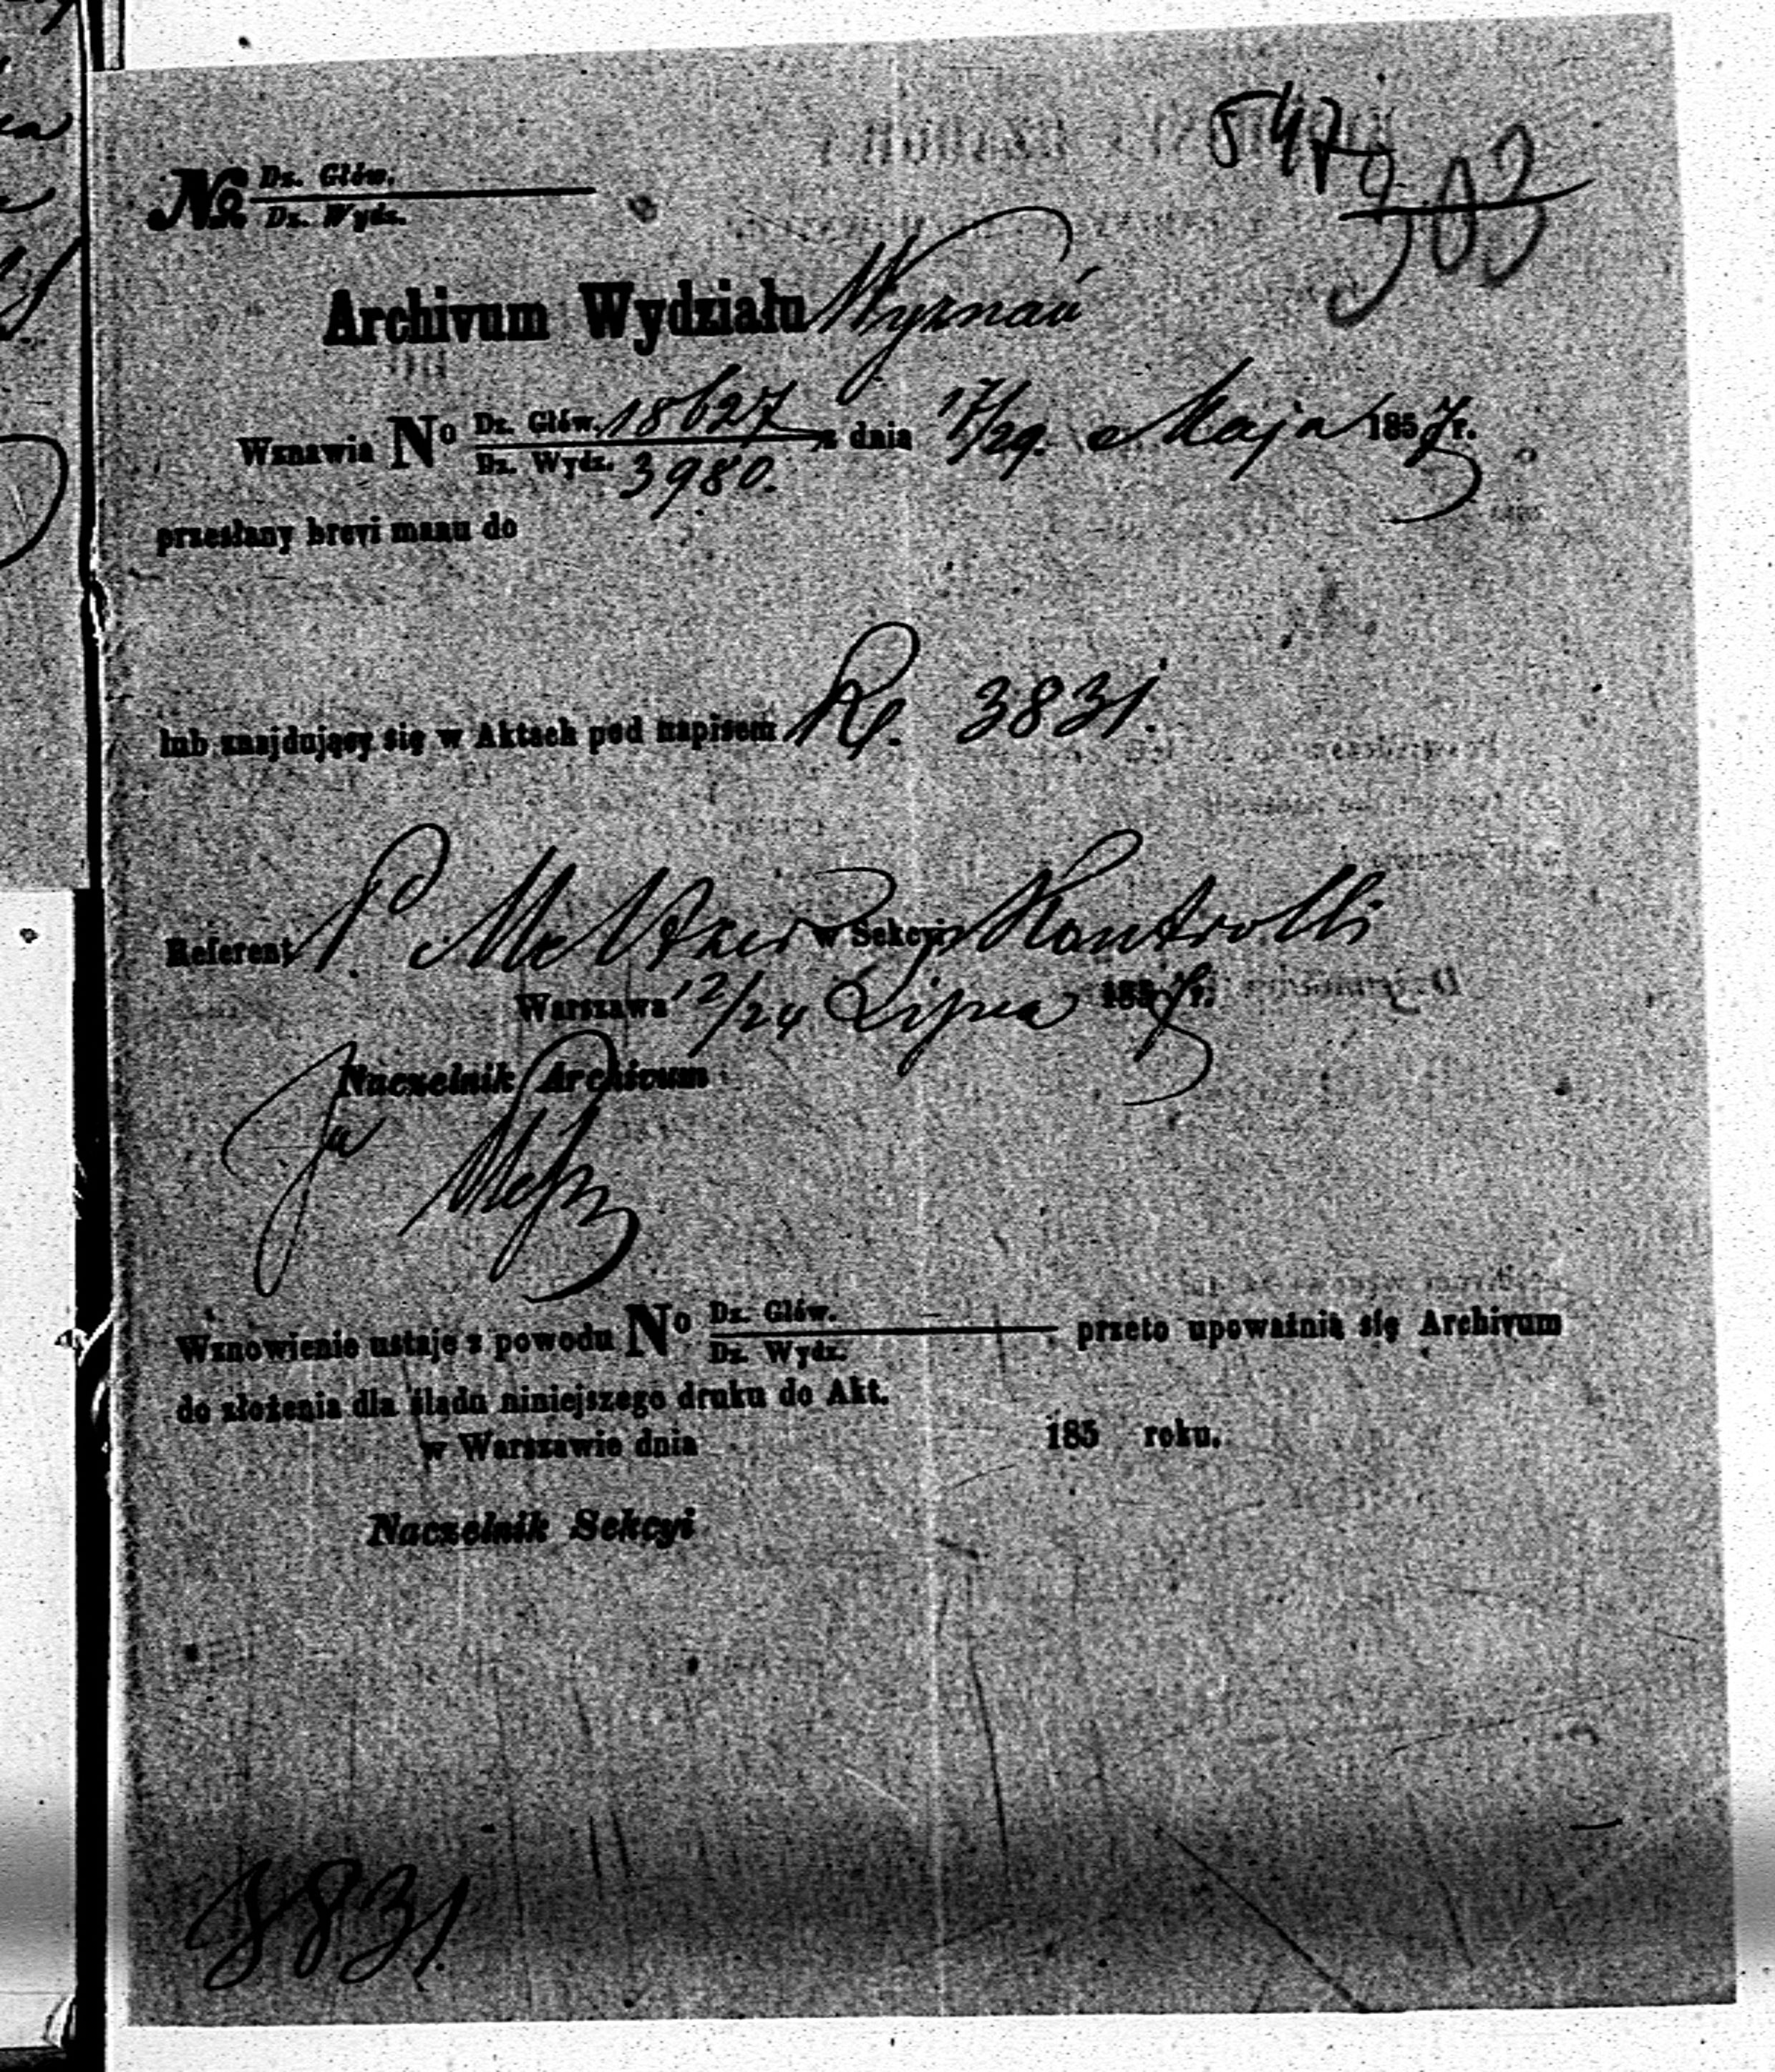 5479
303
No Dz. Głów.
Dz. Wydz.
Archivum Wydziału Wyznań
Wznawia No Dz. Głów. 18627 z dnia 17/29. Maja 1857 r.
Dz. Wydz. 3980.
przesłany brevi manu do
lub znajdujący się w Aktach pod napisem Rp. 3831.
Referent P. Meltzer w Sekcyi Kontrolli
Warszawa 12/24 Lipca 1857 r.
Naczelnik Archivum
Wznowienie ustaje z powodu No Dz. Głów. przeto upoważnia się Archivum
Dz. Wydz.
do złożenia dla śladu niniejszego druku do Akt.
w Warszawie dnia 185 roku.
Naczelnik Sekcyi
3831.